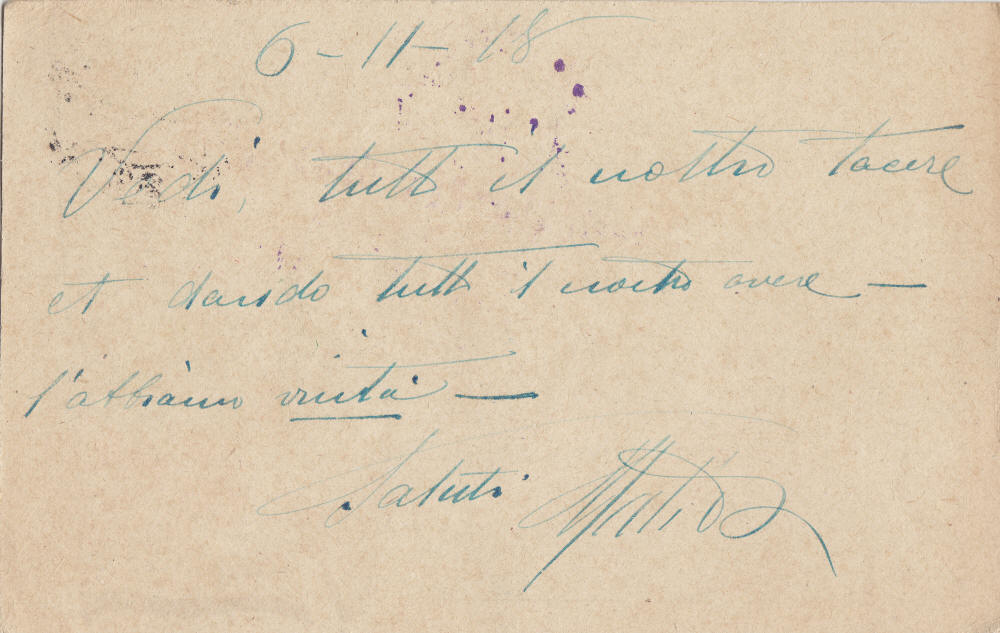 6-11-18
Vedi, tutto il nostro tacere
et dando tutto il nostro avere —
l'abbiamo vinta —
Saluti